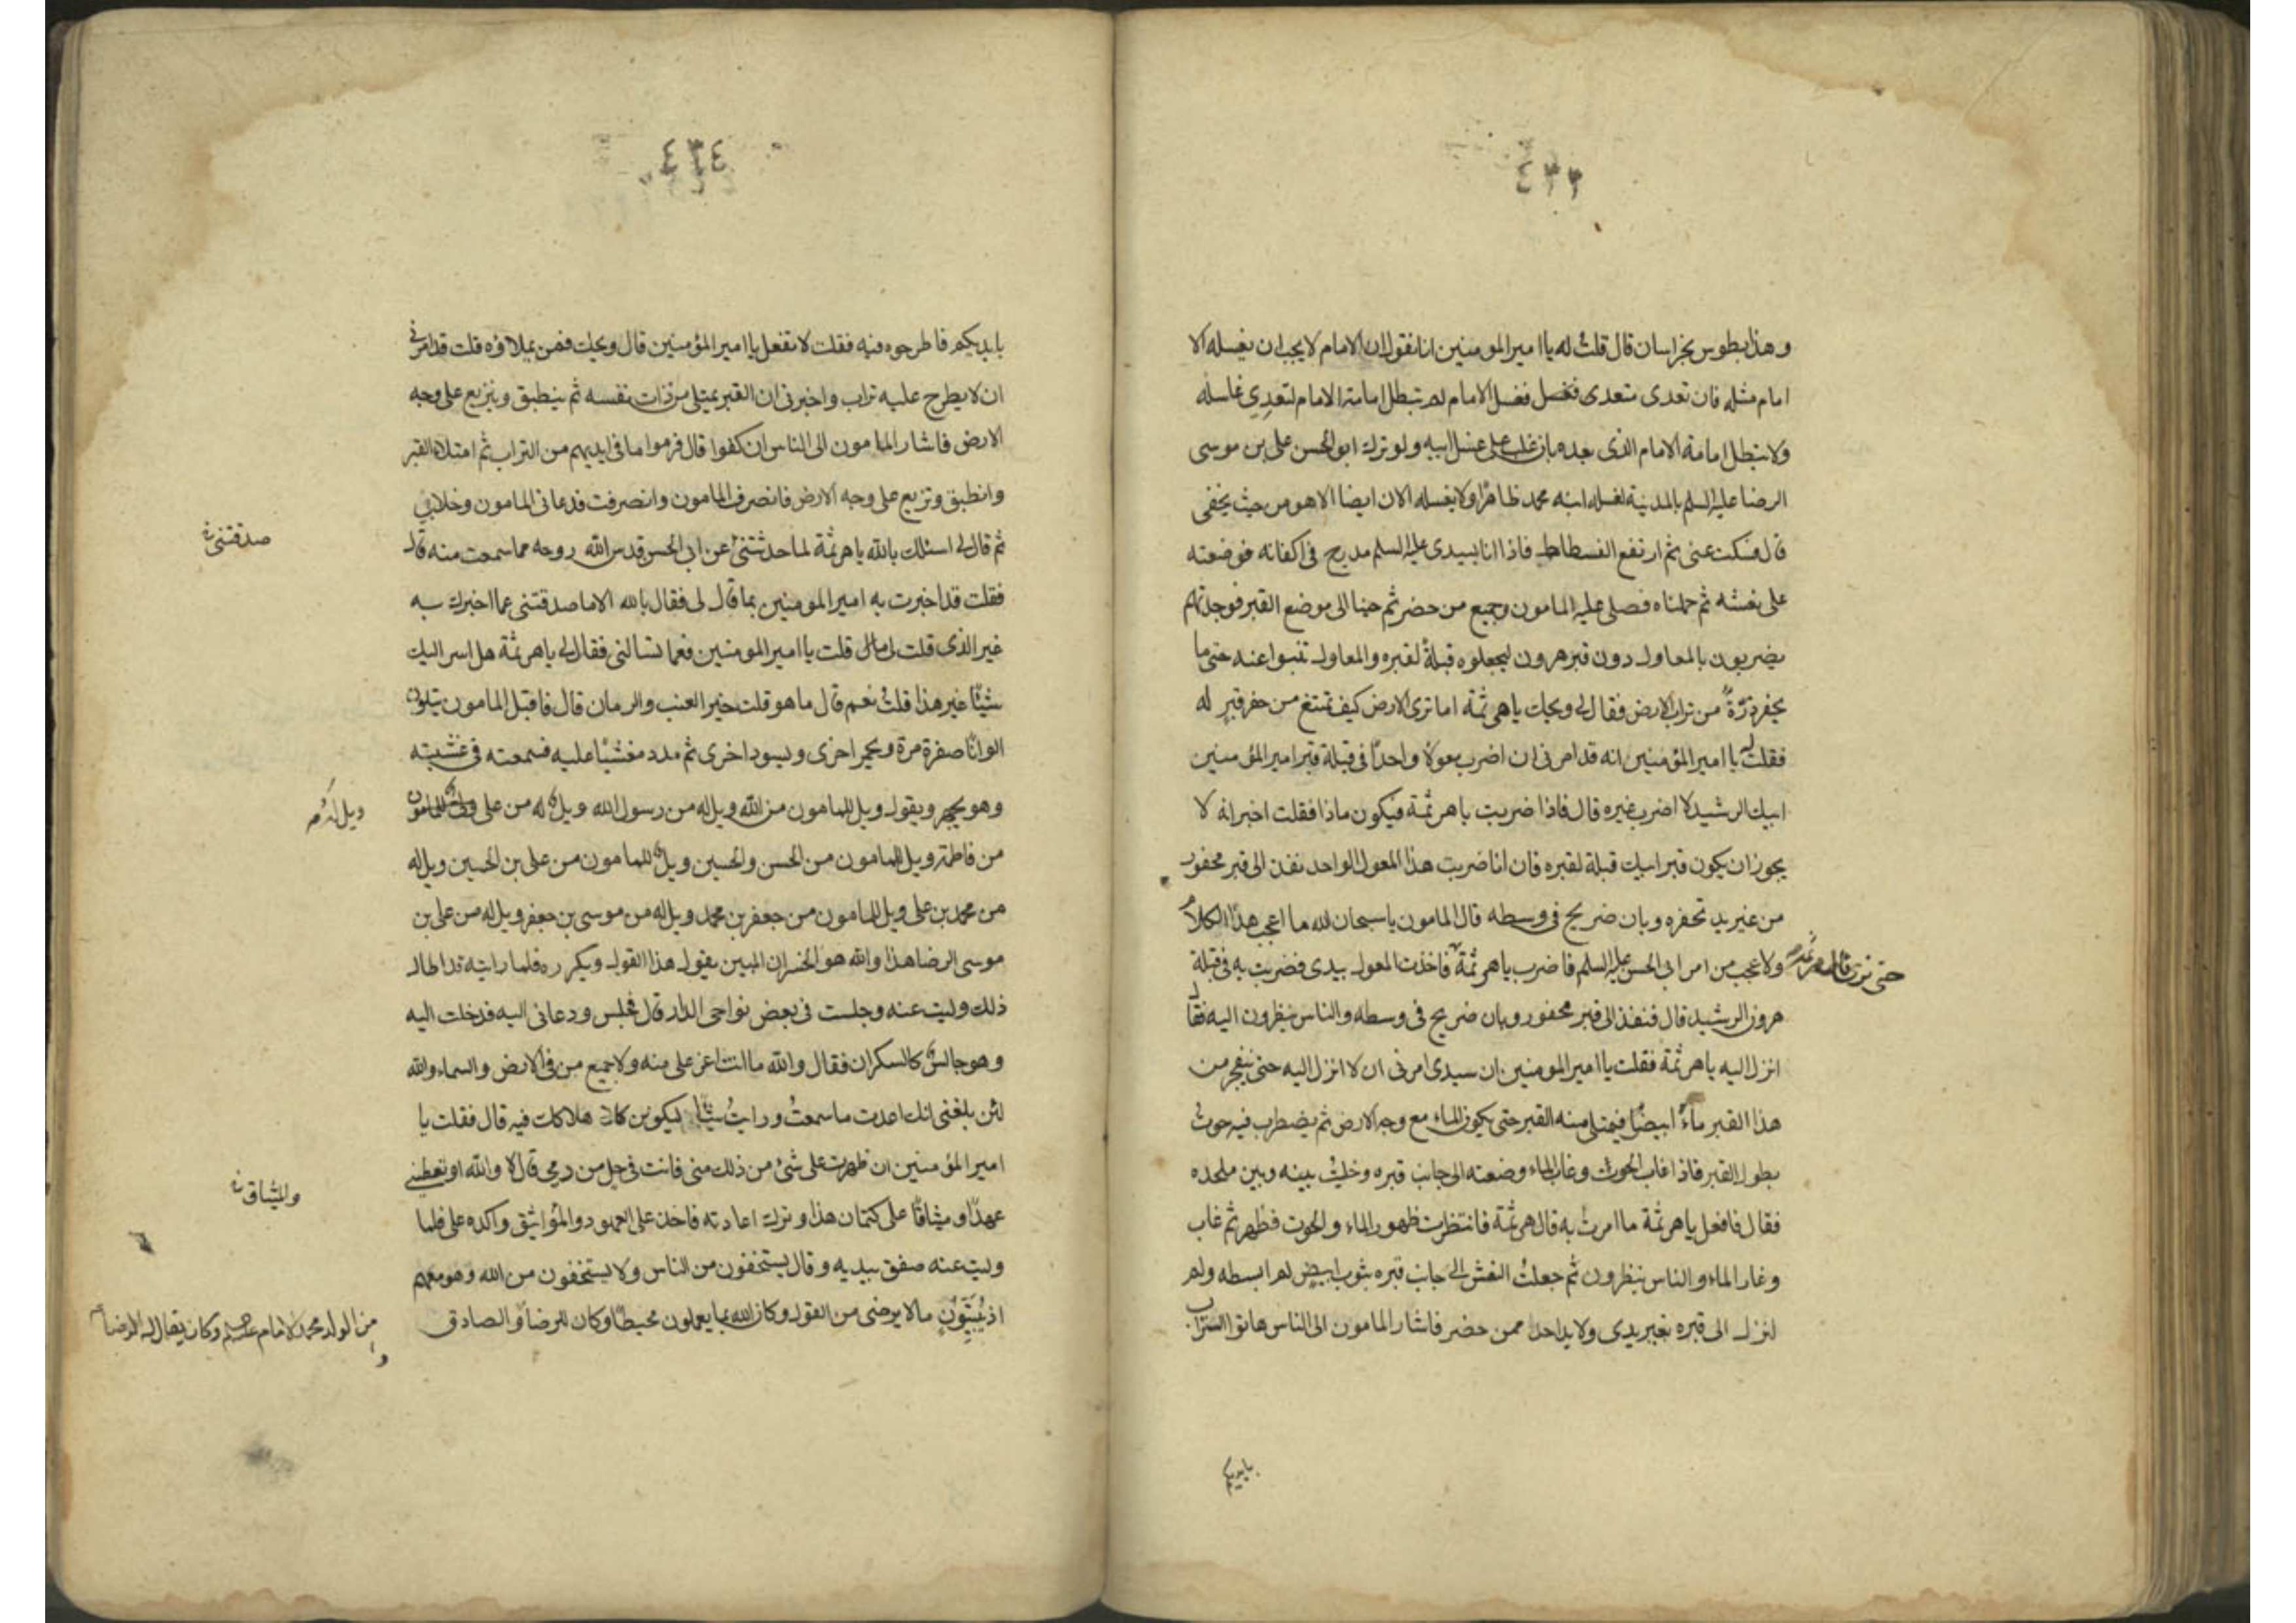 ٤٣٣
وهذا بطوس بخراسان قال قلت له يا امير المومنين انا نقول ان الامام لا يجب ان يغسله الا
امام مثله فان تعدى متعدى فغسل الامام لم تبطل امامة الامام لتعدى غاسله
ولا تبطل امامة الامام الذى بعده بان غلب على غسل ابيه ولو ترك ابو الحسن على بن موسى
الرضا عليه السلم بالمدينة لغسله ابنه محمد ظاهرًا ولا يغسله الان ايضا الا هو من حيث يخفى
قال فسكت عنى ثم ارتفع الفسطاط فاذا انا بسيدى عليه السلم مدرج فى اكفانه فوضعته
على نعشه ثم حملناه فصلى عليه المامون وجميع من حضر ثم جئنا الى موضع القبر فوجدتهم
يضربون بالمعاول دون قبر هرون ليجعلوه قبلةً لقبره والمعاول تنبوا عنه حتى ما
يحفر ذرّةً من تراب الارض فقال لى ويحك يا هرثمة اما ترى الارض كيف تمتنع من حفر قبر له
فقلت له يا امير المؤمنين انه قد امرنى ان اضرب معولا واحدًا فى قبلة قبر امير المؤمنين
ابيك الرشيد لا اضرب غيره قال فاذا ضربت يا هرثمة فيكون ماذا فقلت اخبر انه لا
يجوز ان يكون قبر ابيك قبلة لقبره فان انا ضربت هذا المعول الواحد نفذ الى قبر محفور
من غير يد تحفره وبان ضريح فى وسطه قال المامون يا سبحان الله ما اعجب هذا الكلام
ولا عجب من امر ابى الحسن عليه السلم فاضرب يا هرثمة فاخذت المعول بيدى فضربت به فى قبلة
حتى نرى قال هرثمة
هرون الرشيد قال فنفذ الى قبر محفور وبان ضريح فى وسطه والناس ينظرون اليه فقال
انزل اليه يا هرثمة فقلت يا امير المومنين ان سيدى امرنى ان لا انزل اليه حتى ينفجر من
هذا القبر ماءً ابيضًا فيمتلى منه القبر حتى يكون الماء مع وجه الارض ثم يضطرب فيه حوتٌ
بطول القبر فاذا غاب الحوت وغار الماء وضعته الى جانب قبره وخليت بينه وبين ملحده
فقال فافعل يا هرثمة ما امرت به قال هرثمة فانتظرت ظهور الماء والحوت فظهر ثم غاب
وغار الماء والناس ينظرون ثم جعلت النعش الى جانب قبره بثوب ابيض لم ابسطه ولم
انزل الى قبره بغير يدى ولا يد احد ممن حضر فاشار المامون الى الناس هاتوا التراب
بايديكم
٤٣٤
بايديكم فاطرحوه فيه فقلت لا تفعل يا امير المؤمنين قال ويحك فمن يملاؤه قلت قد امرنى
ان لا يطرح عليه تراب واخبرنى ان القبر يمتلى من ذات نفسه ثم ينطبق ويتربع على وجه
الارض فاشار المامون الى الناس ان كفوا قال فرموا ما فى ايديهم من التراب ثم امتلاء القبر
وانطبق وتربع على وجه الارض فانصرف المامون وانصرفت فدعانى المامون وخلا بى
ثم قال لى اسئلك بالله يا هرثمة لما حدثتنى عن ابى الحسن قدس الله روحه مما سمعت منه قال
صدقتنى
فقلت قد اخبرت به امير المومنين بما قال لى فقال بالله الا ما صدقتنى عما اخبرك به
غير الذى قلت لى قال قلت يا امير المومنين فعما تسالنى فقال لى يا هرثمة هل اسر اليك
شيئًا غير هذا قلت نعم قال ما هو قلت خبر العنب والرمان قال فاقبل المامون يتلون
الوانًا صفرة مرة ويحمر اخرى ويسود اخرى ثم مدد مغشيًا عليه فسمعته فى غشيته
وهو يجهر ويقول ويل للمامون من الله ويل له من رسول الله ويل له من على ويل للمامون
ويل له
من فاطمة ويل للمامون من الحسن والحسين ويل للمامون من على بن الحسين ويل له
من محمد بن على ويل للمامون من جعفر بن محمد ويل له من موسى بن جعفر ويل له من على بن
موسى الرضا هذا والله هو الخسران المبين يقول هذا القول ويكرره فلما رايته قد اطال
ذلك وليت عنه وجلست فى بعض نواحى الدار قال فجلس ودعانى اليه فدخلت اليه
وهو جالس كالسكران فقال والله ما انت اعز على منه ولا جميع من فى الارض والسماء والله
لئن بلغنى انك اعدت ما سمعتُ ورايتُ شيئًا ليكونن هلاكك فيه قال فقلت يا
امير المؤمنين ان ظهرت على شئ من ذلك منى فانت فى حل من دمى قال لا والله او تعطينى
والميثاق
عهدًا وميثاقًا على كتمان هذا وترك اعادته فاخذ على العهود والمؤاثيق واكده على فلما
وليت عنه صفق بيديه وقال يستخفون من الناس ولا يستخفون من الله وهو معهم
اذ يُبَيِّتُونَ ما لا يرضى من القول وكان الله بما يعملون محيطًا وكان للرضا والصادق
من الولد محمد الامام وكان يقال له الرضا